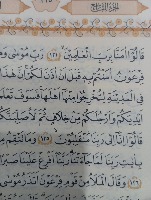 قَالُوٓا۟ ءَامَنَّا بِرَبِّ ٱلْعَٰلَمِينَ ١٢١ رَبِّ مُوسَىٰ وَ
فِرْعَوْنُ ءَامَنتُم بِهِۦ قَبْلَ أَنْ ءَاذَنَ لَكُمْ إِنَّ هَٰذَا
فِى ٱلْمَدِينَةِ لِتُخْرِجُوا۟ مِنْهَآ أَهْلَهَا فَسَوْفَ تَعْلَمُ
أَيْدِيَكُمْ وَأَرْجُلَكُم مِّنْ خِلَٰفٍ ثُمَّ لَأُصَلِّبَنَّكُ
قَالُوٓا۟ إِنَّآ إِلَىٰ رَبِّنَا مُنقَلِبُونَ ١٢٥ وَمَا تَنقِمُ مِ
بِـَٔايَٰتِ رَبِّنَا لَمَّا جَآءَتْنَا رَبَّنَآ أَفْرِغْ عَلَيْنَا صَبْرًا
١٢٦ وَقَالَ ٱلْمَلَأُ مِن قَوْمِ فِرْعَوْنَ أَتَذَرُ مُوسَىٰ